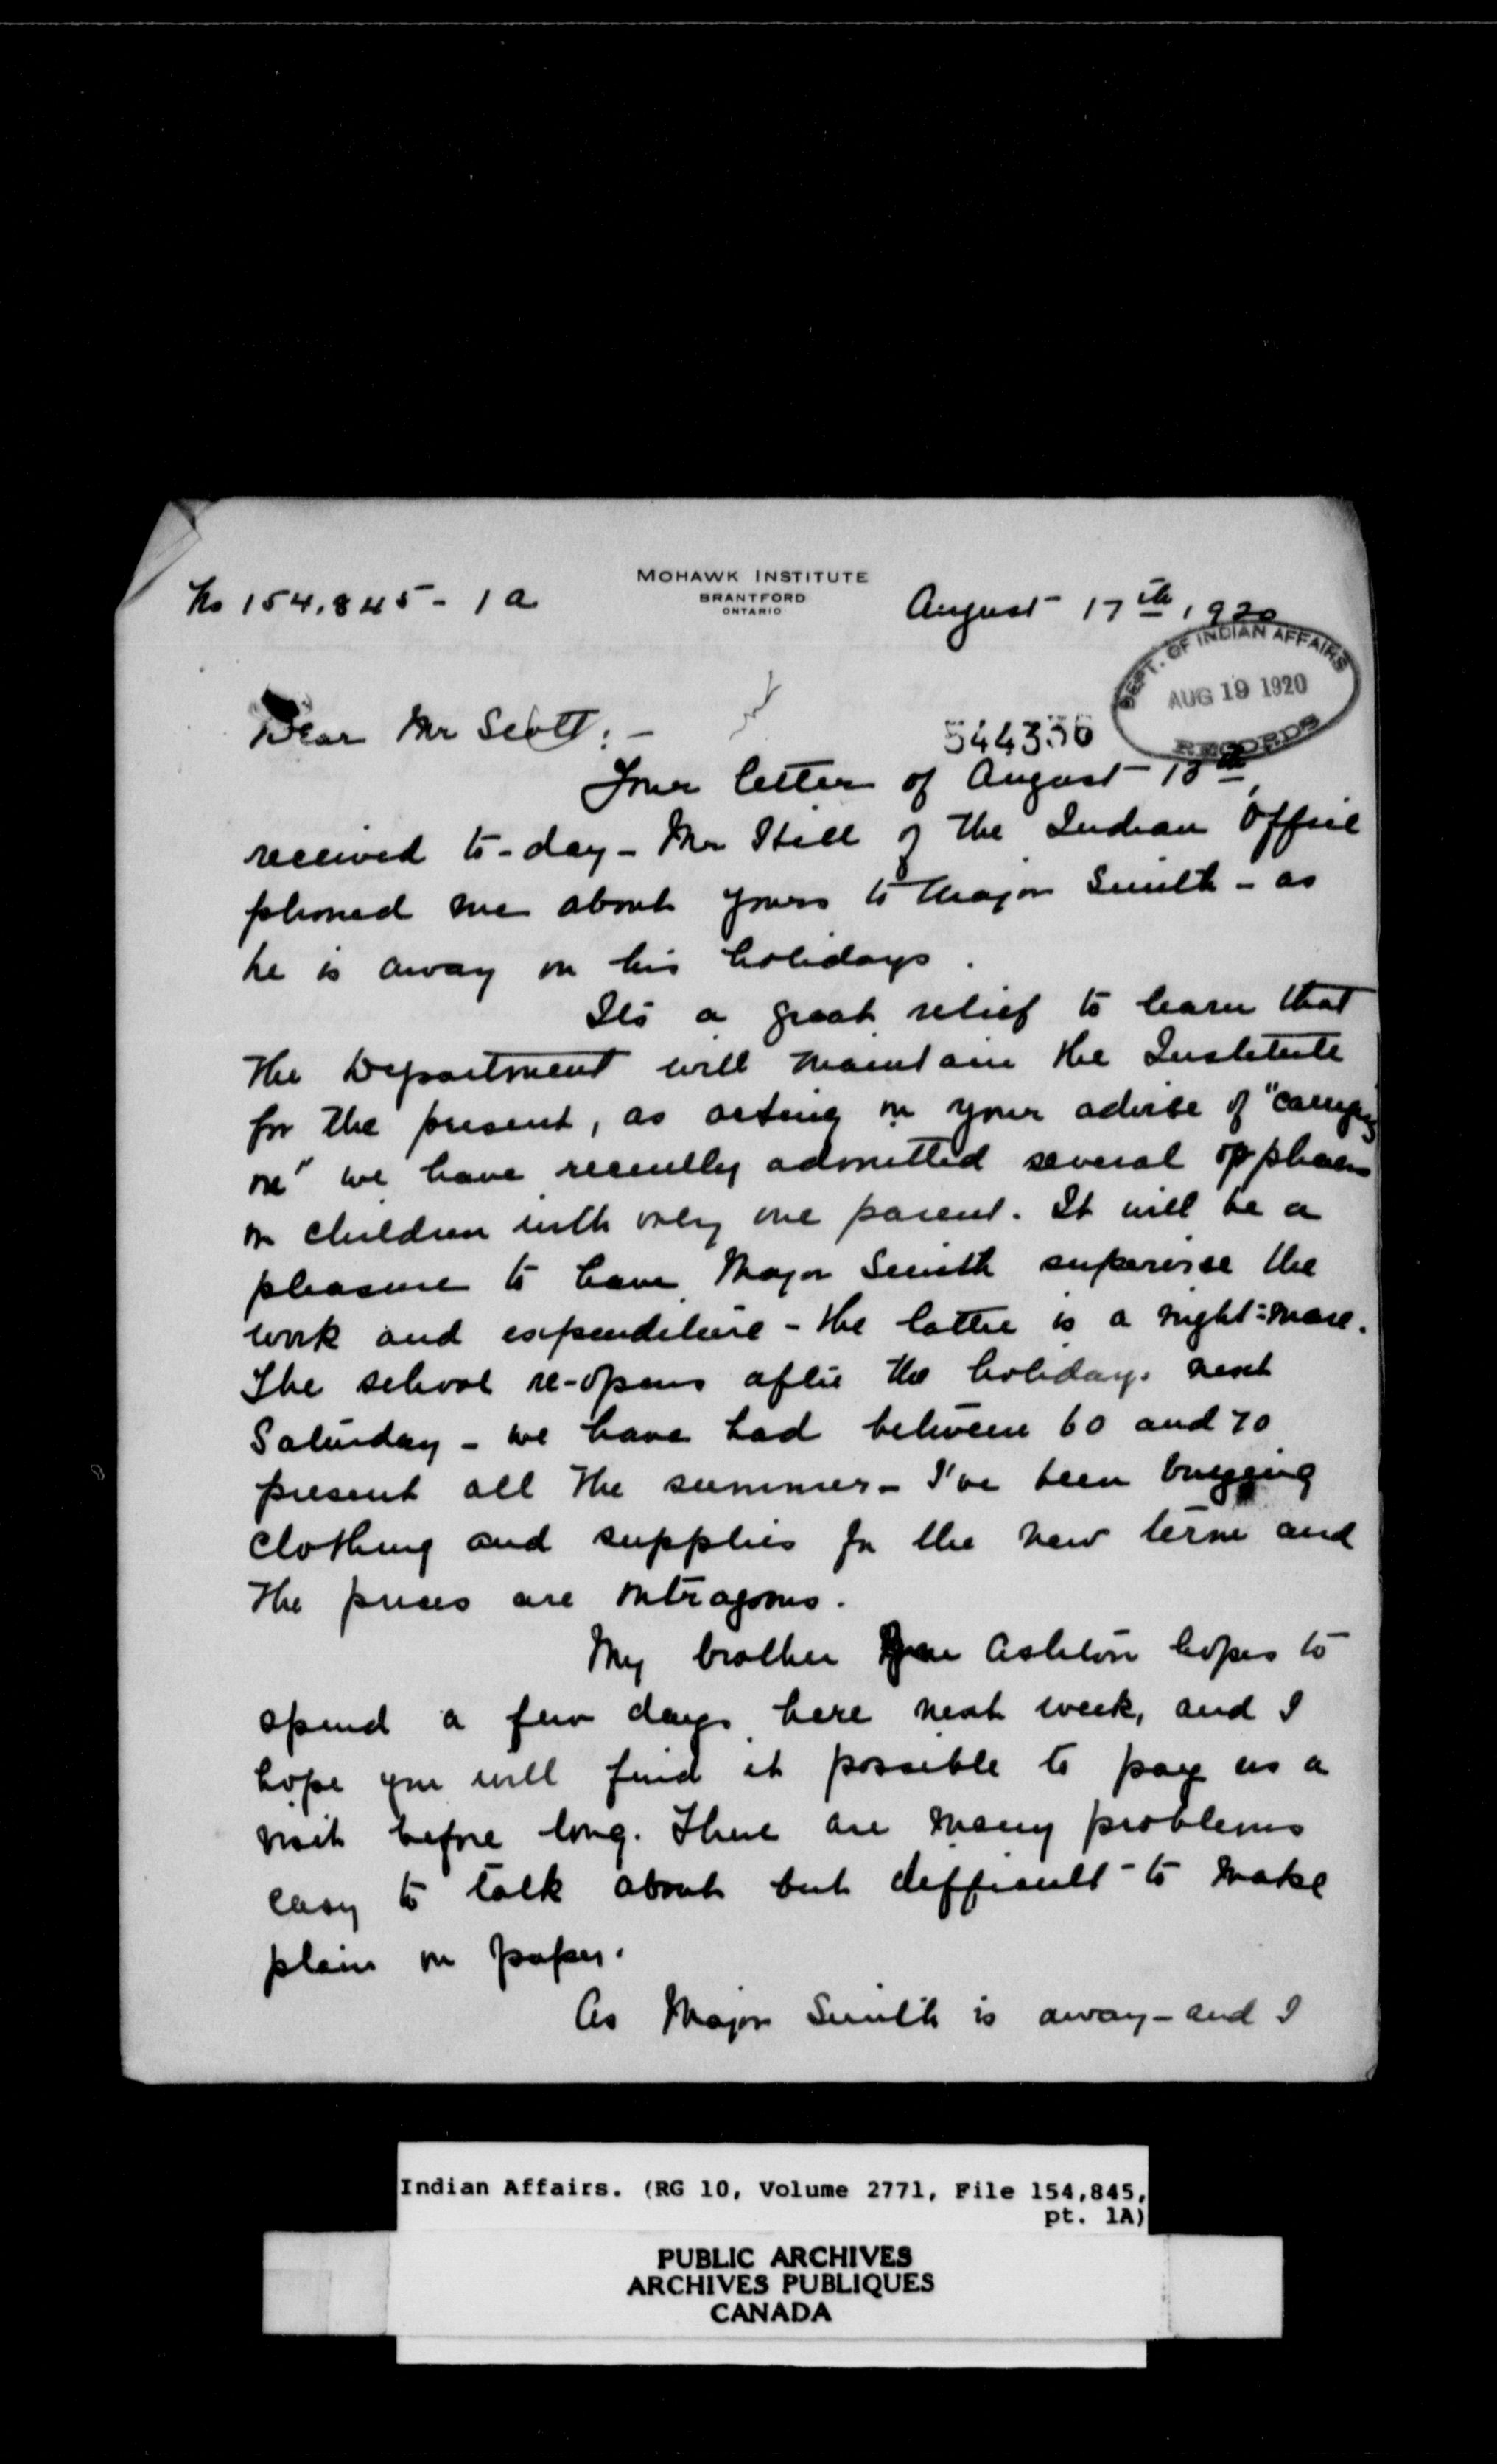 MOHAWK INSTITUTE
BRANTFORD
ONTARIO
No 154,845 - 1a
August 17th, 1920
DEPT. OF INDIAN AFFAIRS
AUG 19 1920
RECORDS
Dear Mr Scott: -
544336
Your letter of August 13th,
received to-day - Mr Still of the Indian Office
phoned me about yours to Major Smith - as
he is away on his holidays.
Its a great relief to learn that
the Department will maintain the Institute
for the present, as acting on your advise of "carrying
on" we have recently admitted several orphans
or children with only one parent. It will be a
pleasure to have Major Smith supervise the
work and expenditure - the latter is a night-mare.
The school re-opens after the holidays next
Saturday - we have had between 60 and 70
present all the summer - I've been buying
clothing and supplies for the new term and
the prices are outrageous.
My brother Ashton hopes to
spend a few days here next week, and I
hope you will find it possible to pay us a
visit before long. There are many problems
easy to talk about but difficult to make
plain on paper.
As Major Smith is away - and I
Indian Affairs. (RG 10, Volume 2771, File 154,845,
pt. 1A)
PUBLIC ARCHIVES
ARCHIVES PUBLIQUES
CANADA